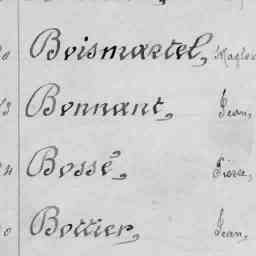 Boismartel,
Bonnant, Jean,
Bossé, Pierre,
Bottier, Jean,